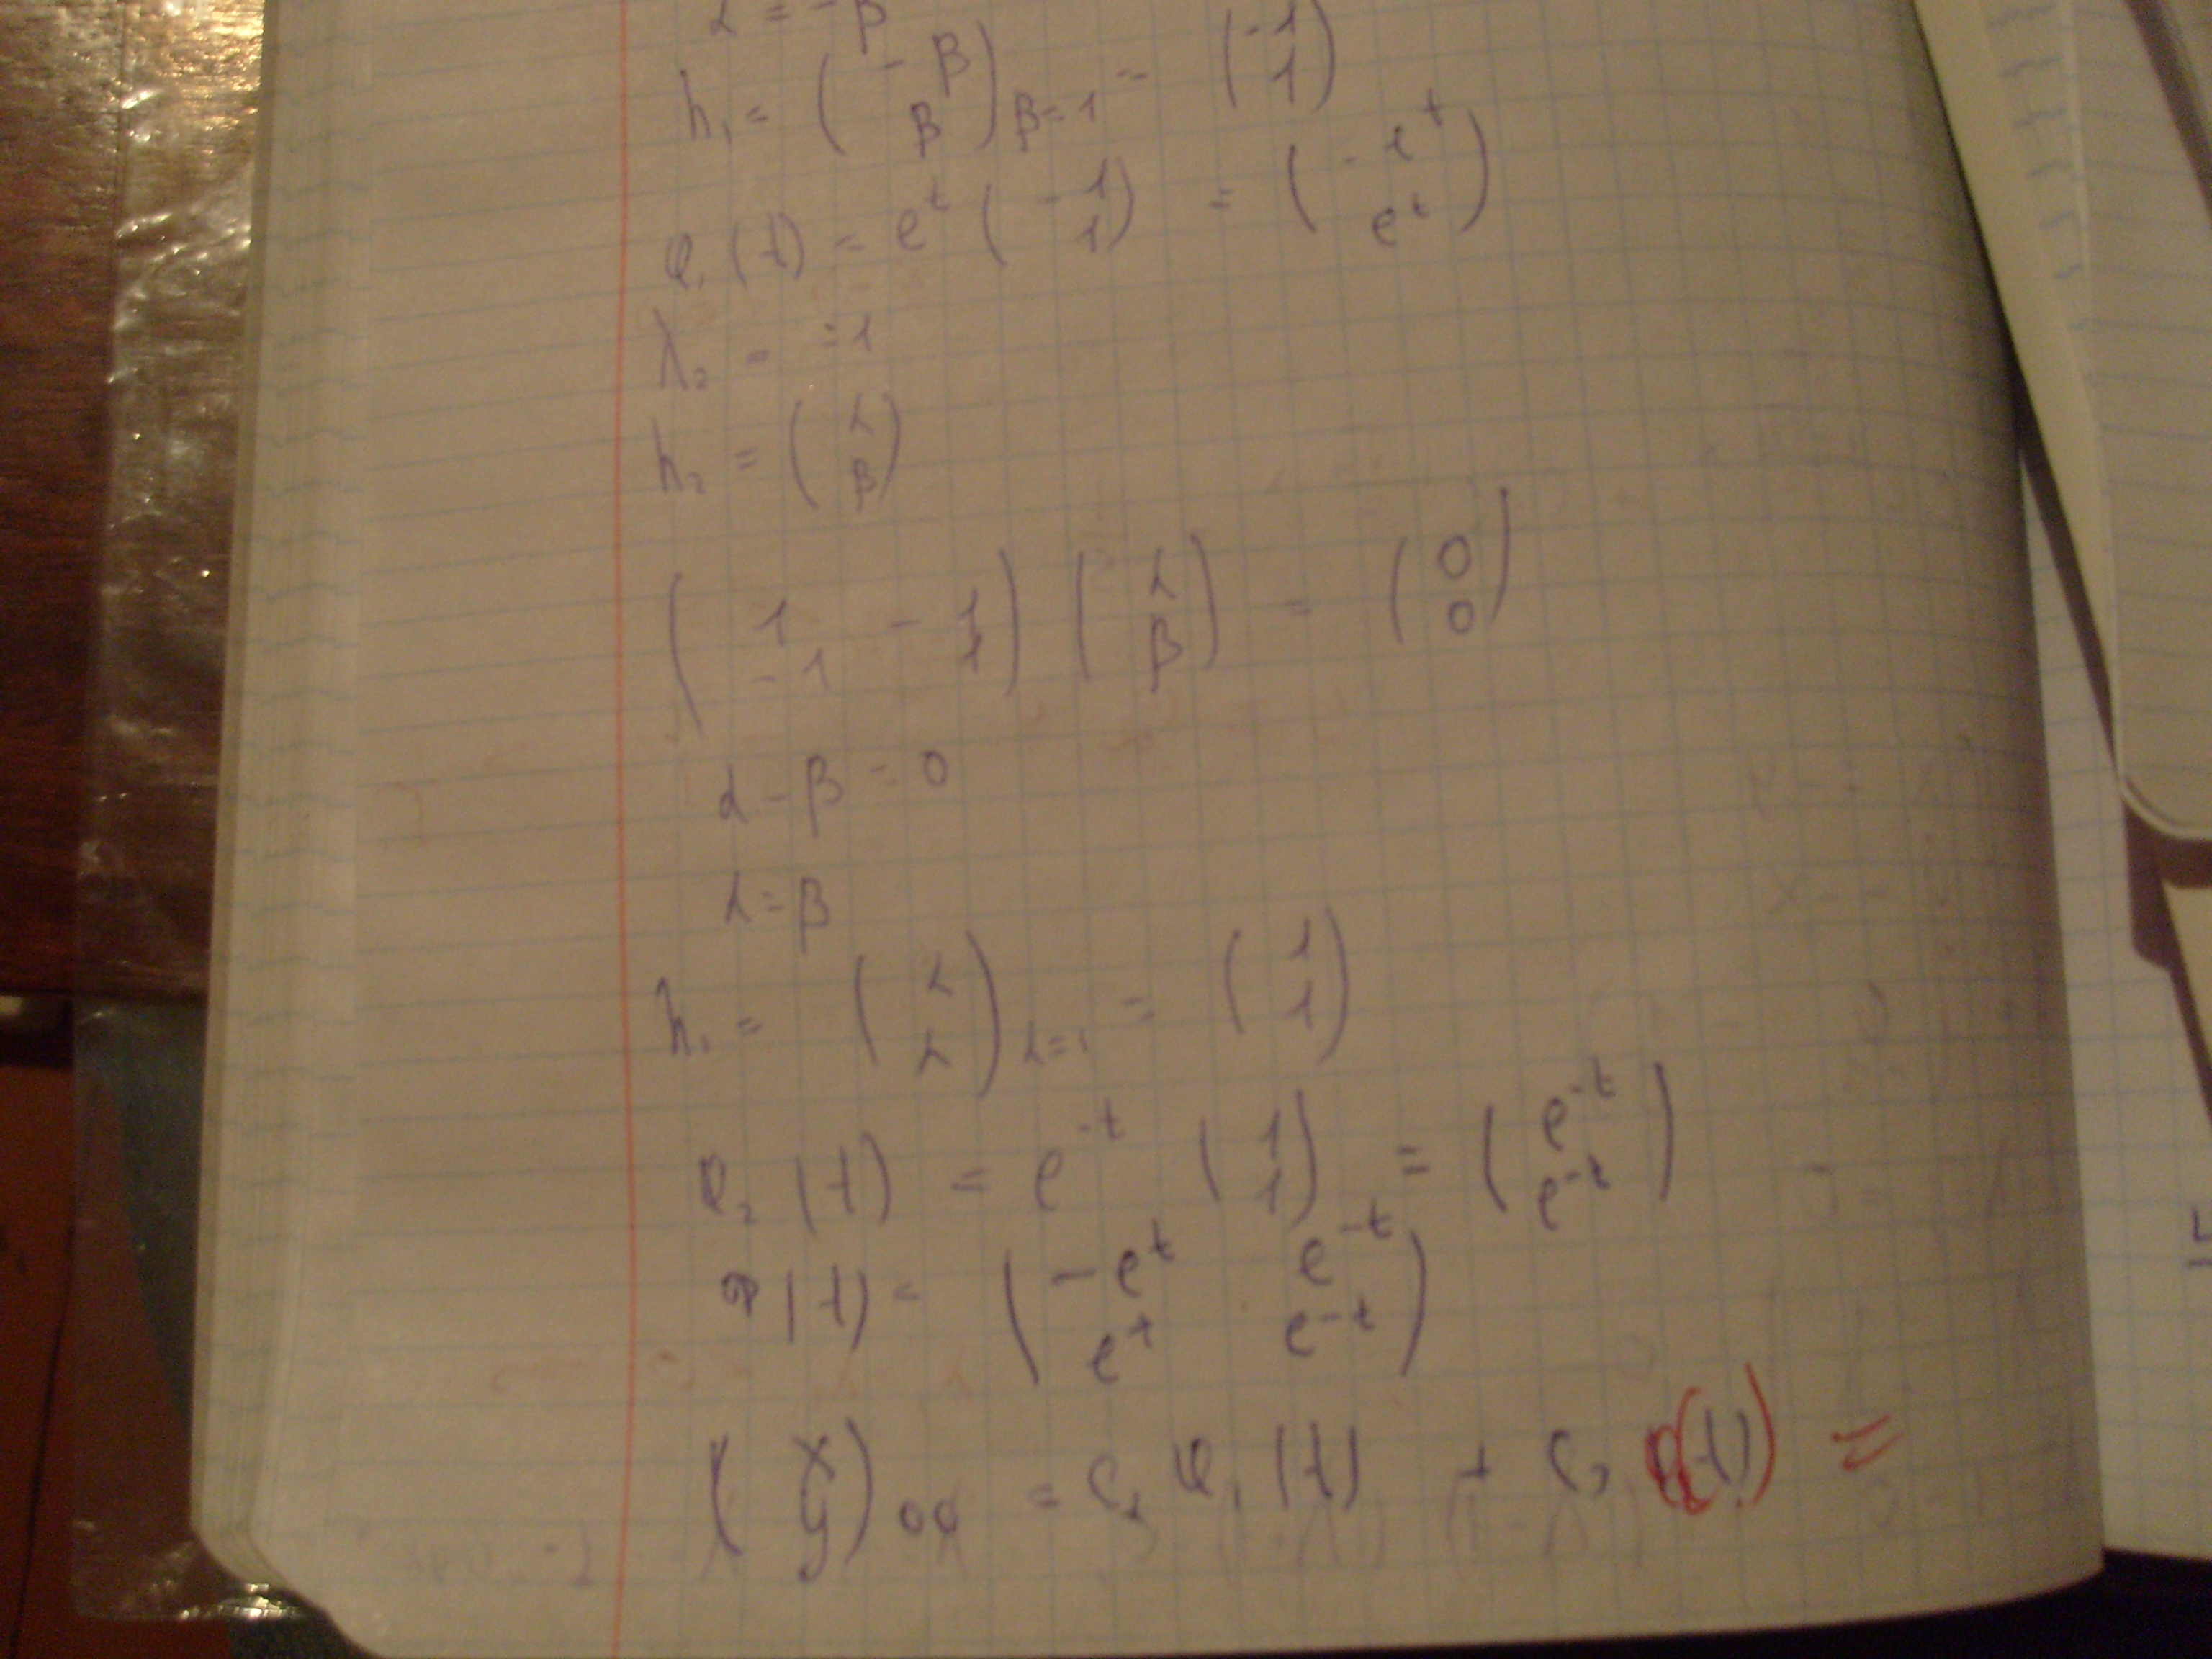 α = -β
h₁ = ( -β ; β ) β=1 = ( -1 ; 1 )
φ₁(t) = eᵗ ( -1 ; 1 ) = ( -eᵗ ; eᵗ )
λ₂ = -1
h₂ = ( α ; β )
( 1 -1 ; -1 1 ) ( α ; β ) = ( 0 ; 0 )
α - β = 0
α = β
h₁ = ( α ; α ) α=1 = ( 1 ; 1 )
φ₂(t) = e⁻ᵗ ( 1 ; 1 ) = ( e⁻ᵗ ; e⁻ᵗ )
Φ(t) = ( -eᵗ e⁻ᵗ ; eᵗ e⁻ᵗ )
( x ; y ) oo = c₁ φ₁(t) + c₂ φ(t) =